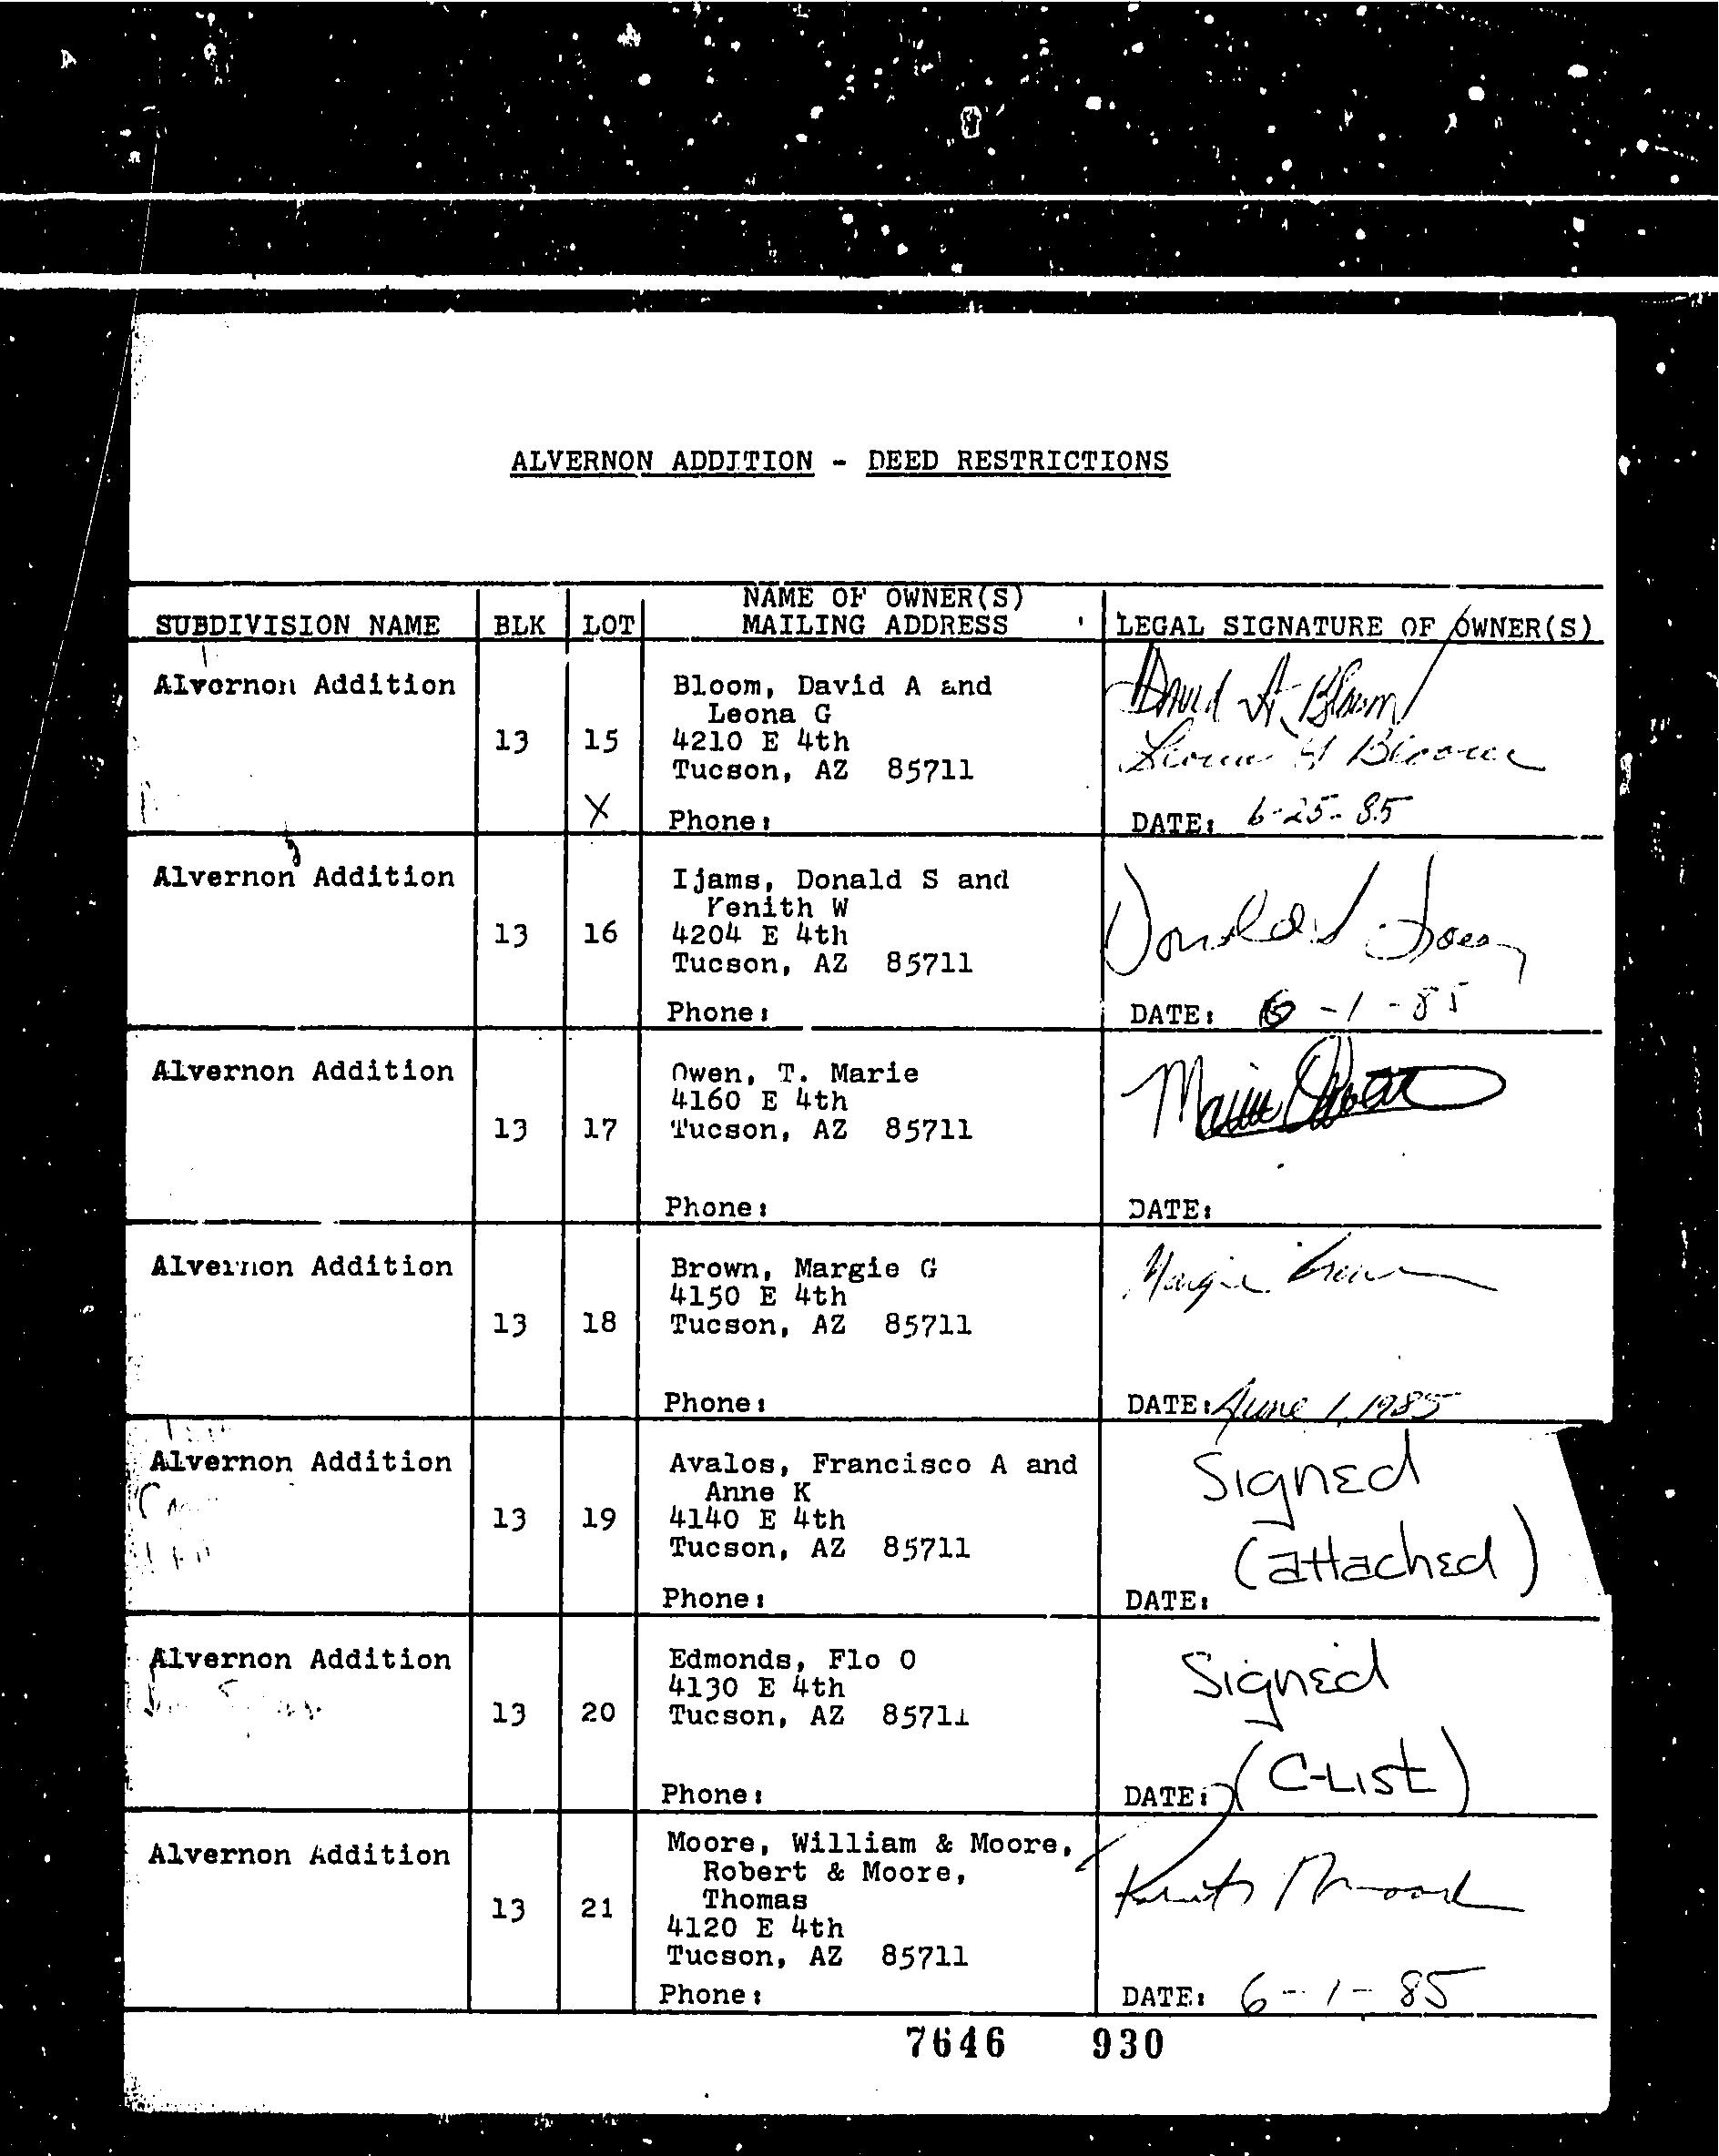 ALVERNON ADDITION - DEED RESTRICTIONS
SUBDIVISION NAME BLK LOT NAME OF OWNER(S) MAILING ADDRESS LEGAL SIGNATURE OF OWNER(S)
Alvernon Addition 13 15 X
Bloom, David A and
Leona G
4210 E 4th
Tucson, AZ 85711
Phone:
David A. Bloom
Leona G Bloom
DATE: 6-25-85
Alvernon Addition 13 16
Ijams, Donald S and
Kenith W
4204 E 4th
Tucson, AZ 85711
Phone:
Donald S
DATE: 6-1-85
Alvernon Addition 13 17
Owen, T. Marie
4160 E 4th
Tucson, AZ 85711
Phone:
Marie
DATE:
Alvernon Addition 13 18
Brown, Margie G
4150 E 4th
Tucson, AZ 85711
Phone:
Margie Brown
DATE: June 1, 1985
Alvernon Addition 13 19
Avalos, Francisco A and
Anne K
4140 E 4th
Tucson, AZ 85711
Phone:
Signed
(attached)
DATE:
Alvernon Addition 13 20
Edmonds, Flo O
4130 E 4th
Tucson, AZ 85711
Phone:
Signed
(C-List)
DATE:
Alvernon Addition 13 21
Moore, William & Moore,
Robert & Moore,
Thomas
4120 E 4th
Tucson, AZ 85711
Phone:
Moore
DATE: 6-1-85
7646 930